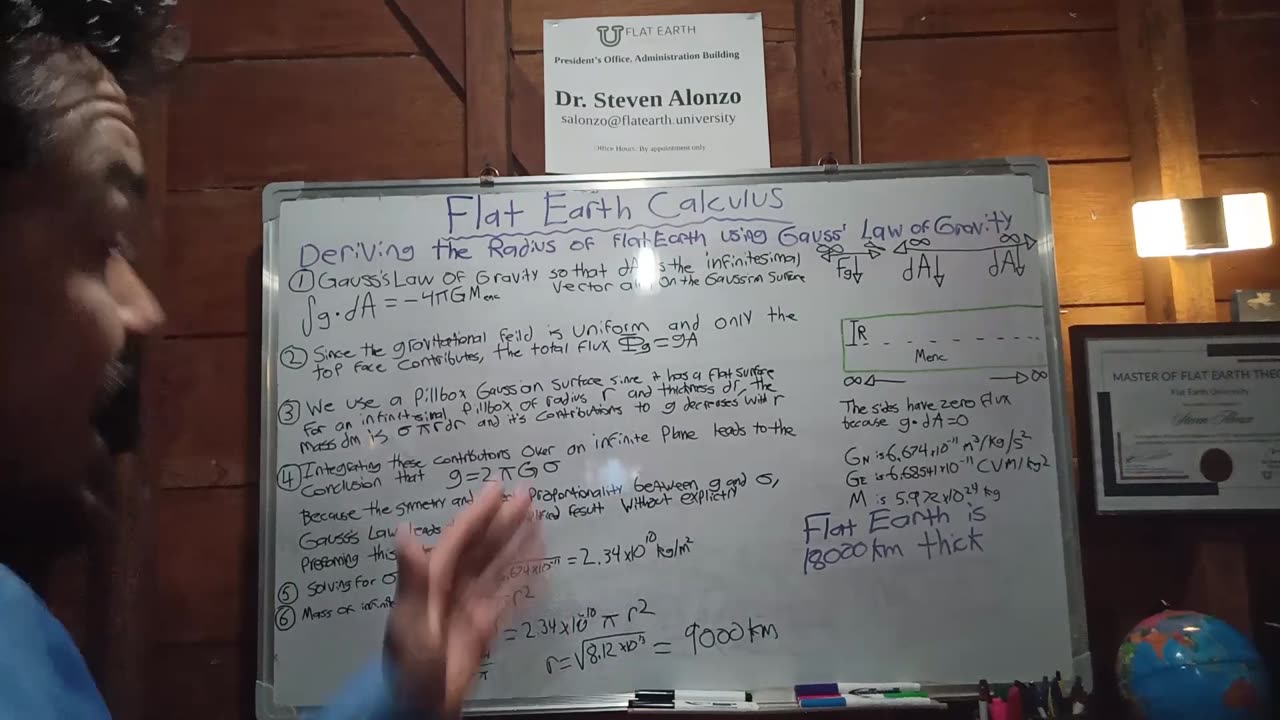 FLAT EARTH
President's Office, Administration Building
Dr. Steven Alonzo
salonzo@flatearth.university
Office Hours: By appointment only
Flat Earth Calculus
Deriving the Radius of Flat Earth using Gauss' Law of Gravity
① Gauss's Law of Gravity so that dA is the infinitesimal
vector on the Gaussian Surface
∫g·dA = -4πGMenc
② Since the gravitational feild is uniform and only the
top face contributes, the total flux Φg = gA
③ We use a Pillbox Gaussian surface since it has a flat surface
For an infinitesimal pillbox of radius r and thickness dr, the
mass dm is σπrdr and it's contributions to g decreases with r
④ Integrating these contributors over an infinite Plane leads to the
conclusion that g=2πGσ
Because the symetry and Proportionality between g and σ,
Gauss's Law leads result without explictly
⑤ Solving for σ = 2.34×10¹⁰ kg/m²
⑥ Mass of r²
= 2.34×10¹⁰ π r²
r = √8.12×10¹³ = 9000 km
∞ ∞ ∞
Fg↓ dA↓ dA↓
R
Menc
∞ ∞
The sides have zero flux
because g·dA=0
GN is 6.674×10⁻¹¹ m³/kg/s²
GE is 6.68541×10⁻¹¹ CVM/kg²
M is 5.972×10²⁴ kg
Flat Earth is
18000 km thick
MASTER OF FLAT EARTH
Flat Earth University